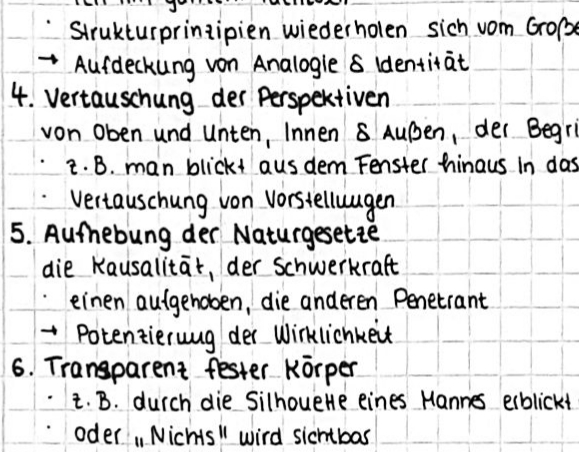 · Strukturprinzipien wiederholen sich vom Große
→ Aufdeckung von Analogie & Identität
4. Vertauschung der Perspektiven
von Oben und Unten, Innen & Außen, der Begri
· z.B. man blickt aus dem Fenster hinaus in das
· Vertauschung von Vorstellungen
5. Aufhebung der Naturgesetze
die Kausalität, der Schwerkraft
· einen aufgehoben, die anderen Penetrant
→ Potenzierung der Wirklichkeit
6. Transparenz fester Körper
· z.B. durch die Silhouette eines Mannes erblickt
· oder „Nichts" wird sichtbar